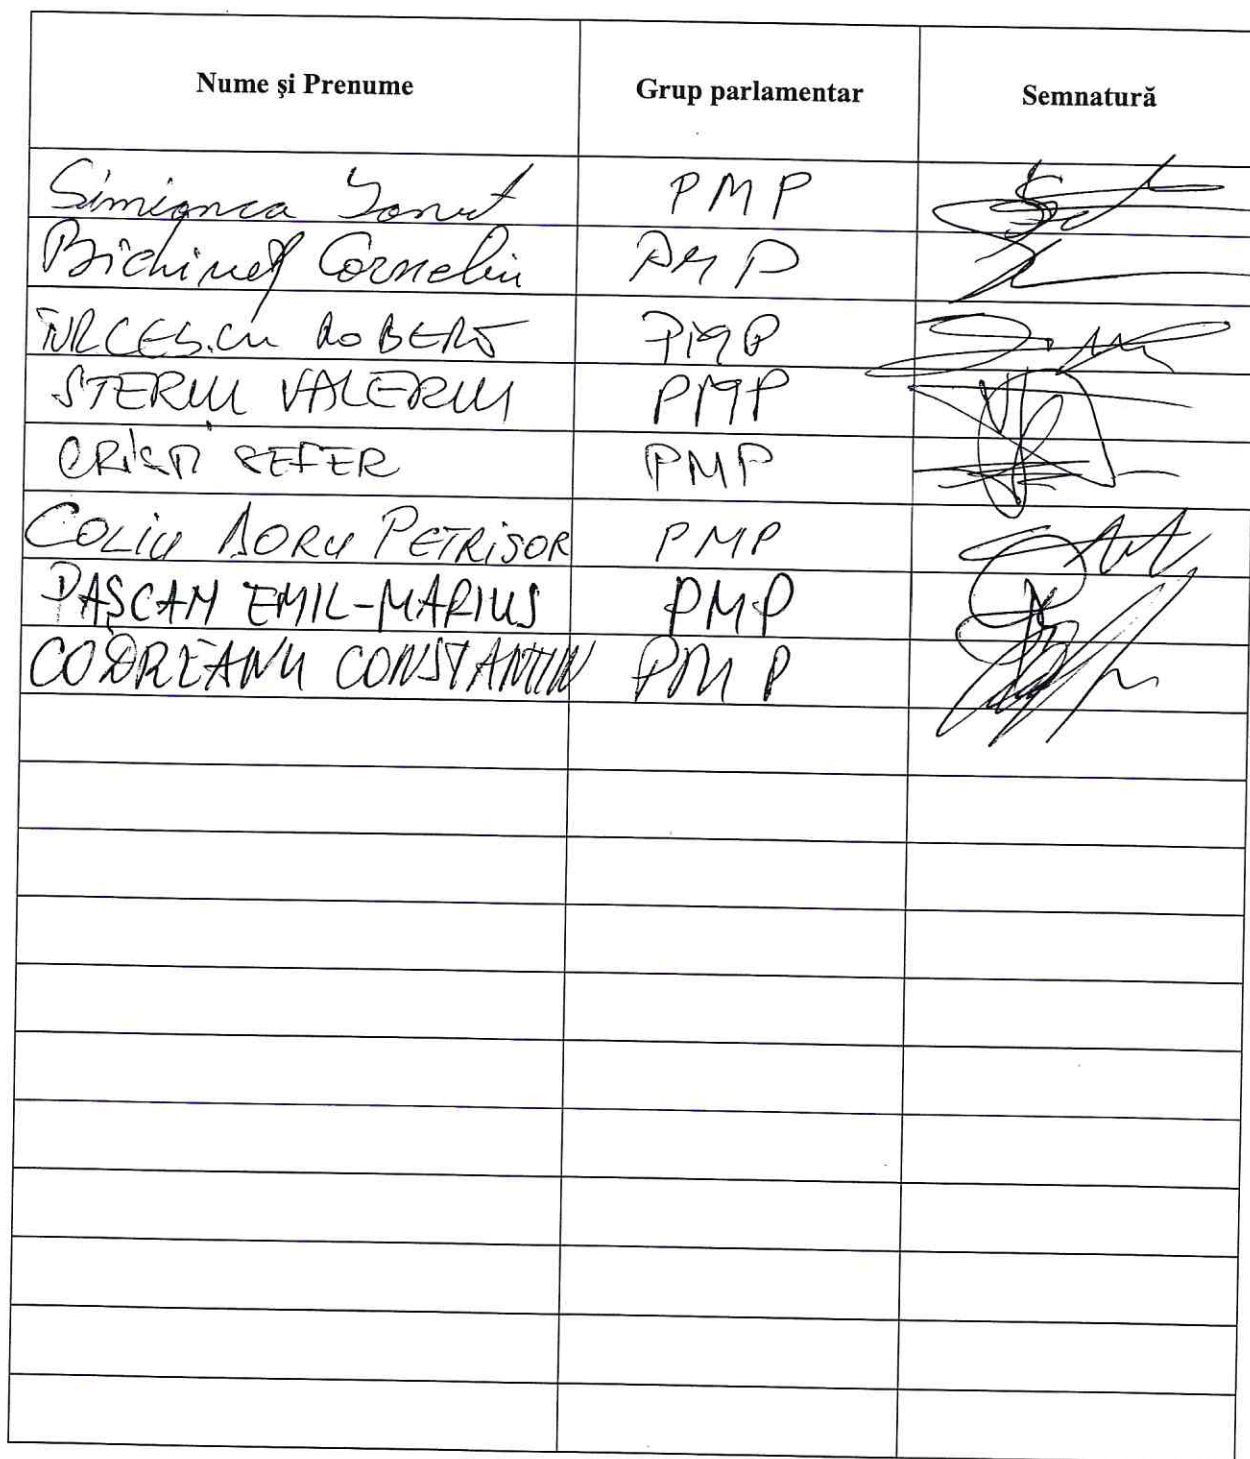 Nume şi Prenume Grup parlamentar Semnatură
Simionca Ionut PMP
Bichineț Corneliu PMP
TURCESCU ROBERT PMP
STERIU VALERIU PMP
CRISTI SEFER PMP
COLIU DORU PETRIȘOR PMP
PAȘCAN EMIL-MARIUS PMP
CODREANU CONSTANTIN PMP